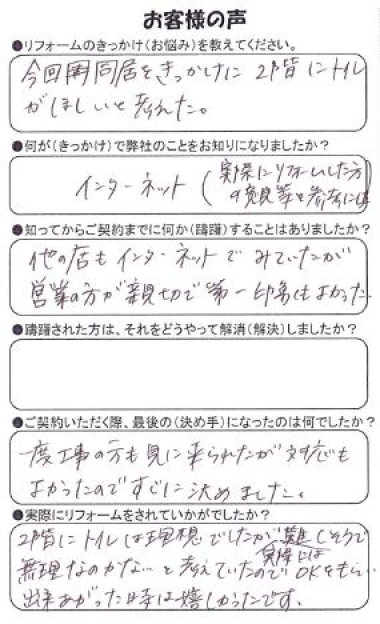 お客様の声
●リフォームのきっかけ(お悩み)を教えてください。
今回再同居をきっかけに 2階にトイレ
がほしいと考えた。
●何が(きっかけ)で弊社のことをお知りになりましたか?
インターネット (実際にリフォームした方
の意見等を参考には
●知ってからご契約までに何か(躊躇)することはありましたか?
他の店もインターネットでみていたが
営業の方が親切で第一印象もよかった
●躊躇された方は、それをどうやって解消(解決)しましたか?
●ご契約いただく際、最後の(決め手)になったのは何でしたか?
一度工事の方も見に来られたが対応も
よかったのですぐに決めました。
●実際にリフォームをされていかがでしたか?
2階にトイレは理想でしたが難しそうで
無理なのかな…と考えていたので実際にはOKをもらい
出来あがった時は嬉しかったです。